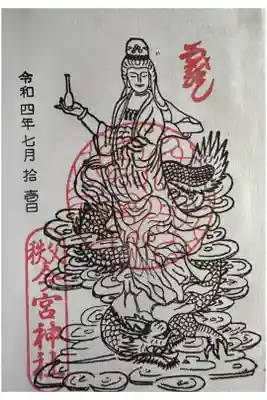 令和四年七月拾壹日
秩父
今宮神社